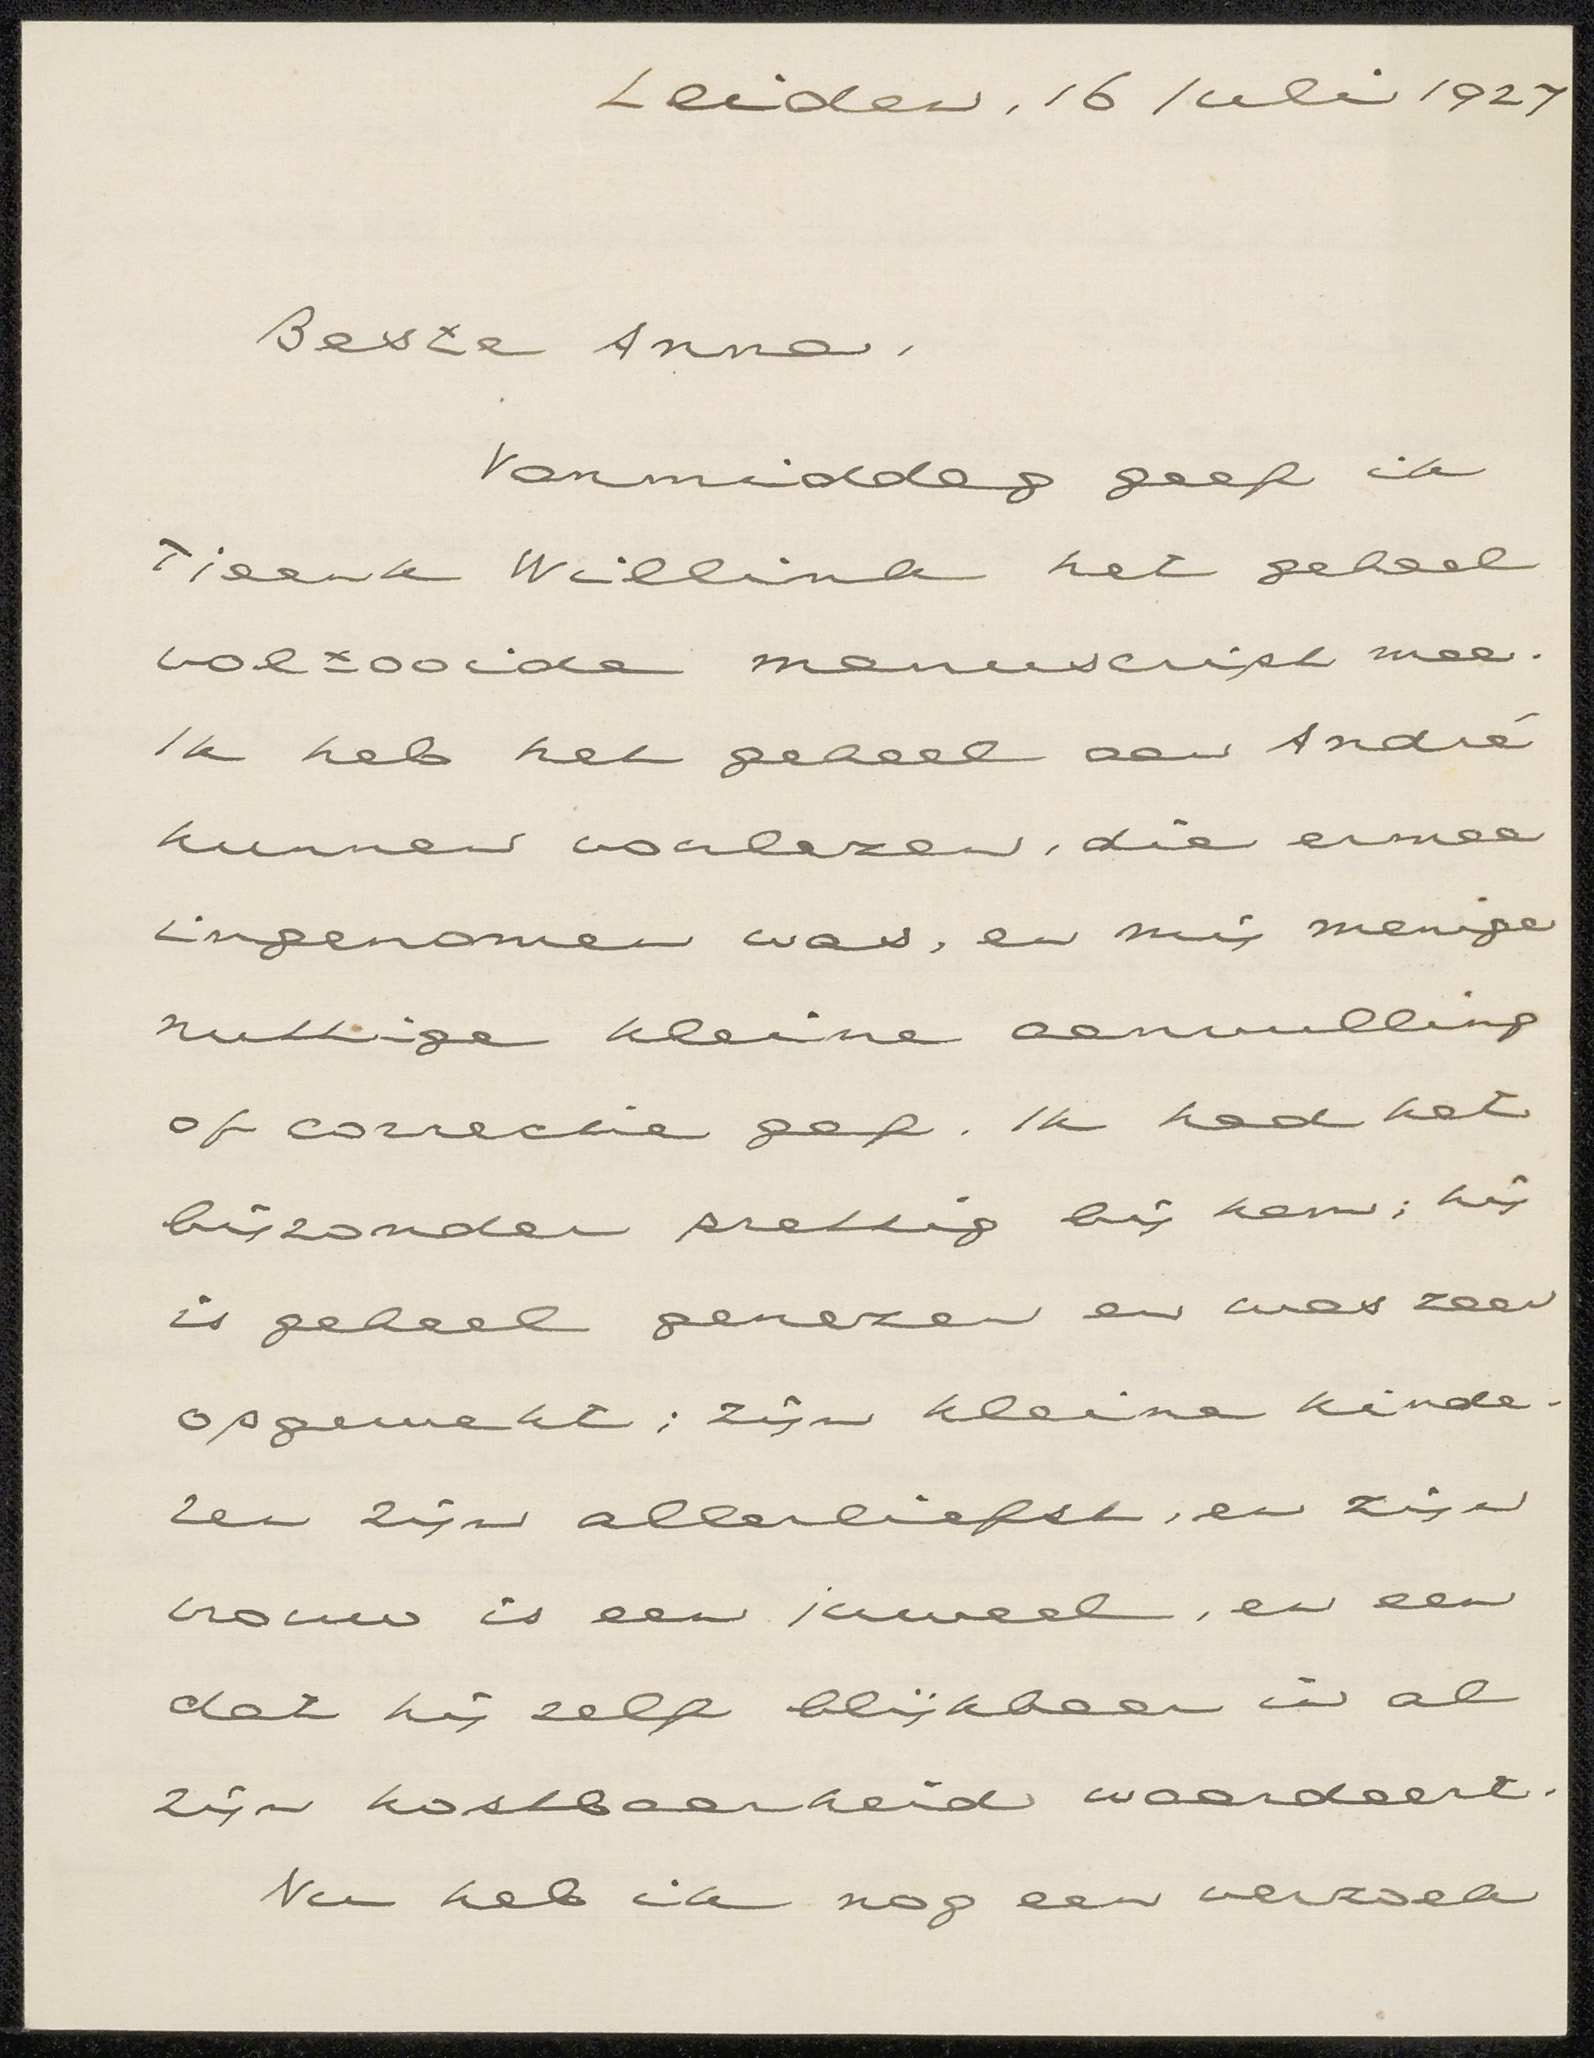 Leiden, 16 Juli 1927
Beste Anna,
Vanmiddag geef ik
Tjeenk Willink het geheel
voltooide manuscript mee.
Ik heb het geheel aan André
kunnen voorlezen, die ermee
ingenomen was, en mij menige
nuttige kleine aanvulling
of correctie gaf. Ik had het
bijzonder prettig bij hem; hij
is geheel genezen en was zeer
opgewekt; zijn kleine kinde-
ren zijn allerliefst, en zijn
vrouw is een juweel, en een
dat hij zelf blijkbaar in al
zijn kostbaarheid waardeert.
Nu heb ik nog een verzoek